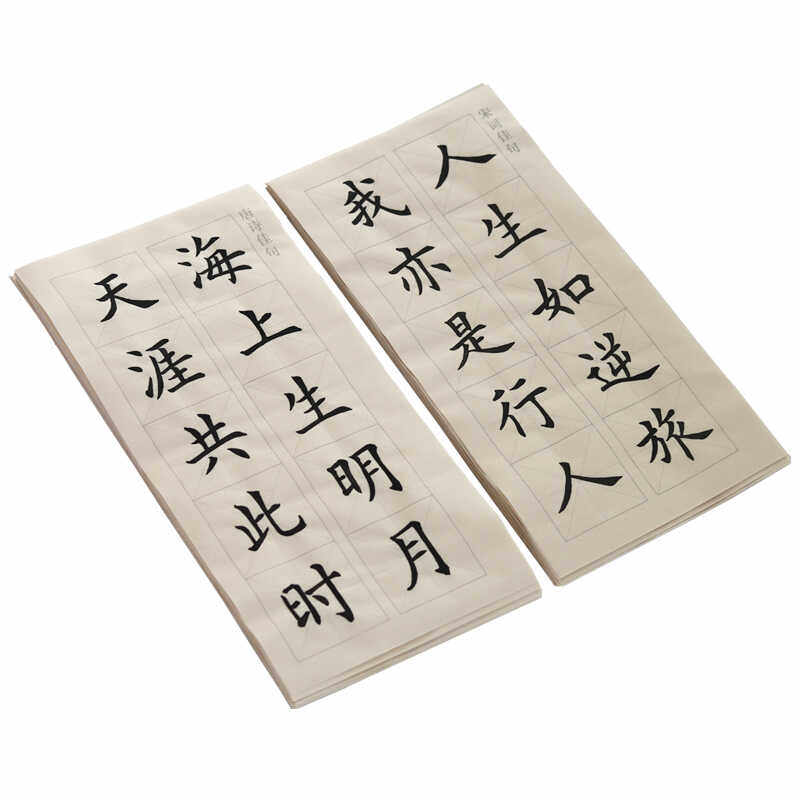 唐诗佳句
海上生明月
天涯共此时
宋词佳句
人生如逆旅
我亦是行人